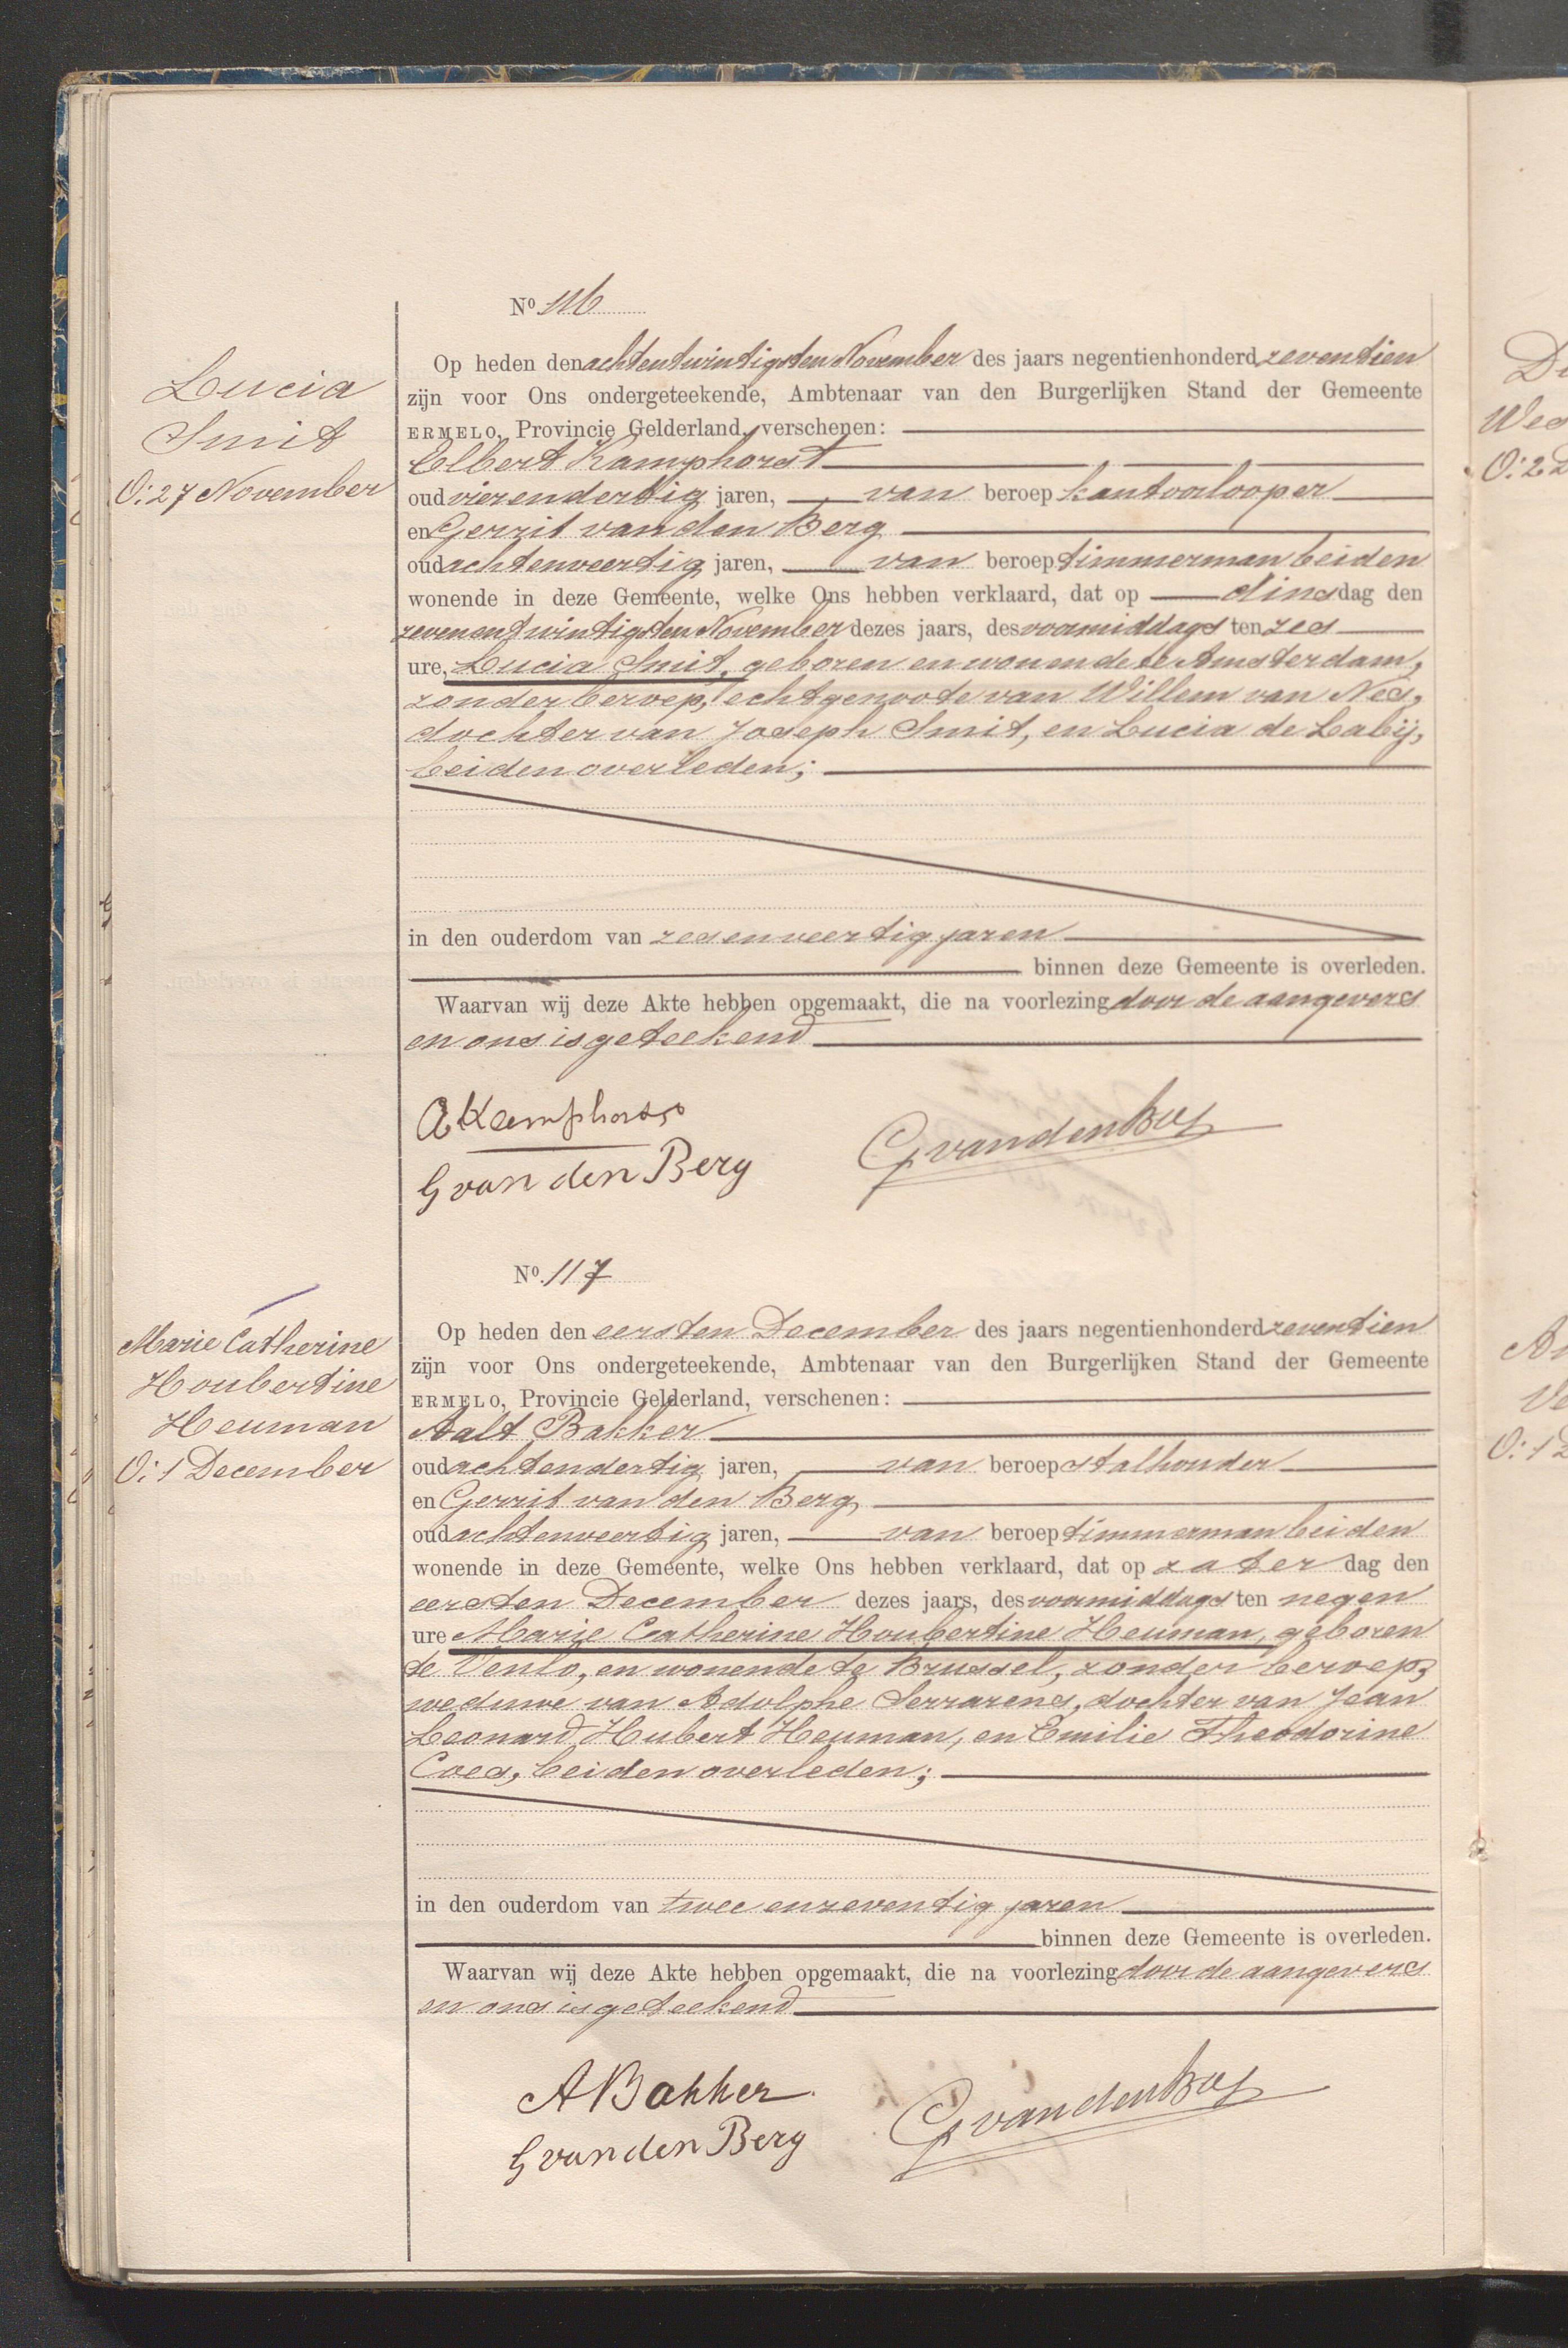 Nº 116
Lucia
Smit
O: 27 November
Op heden den achtentwintigsten November des jaars negentienhonderd zeventien
zijn voor Ons ondergeteekende, Ambtenaar van den Burgerlijken Stand der Gemeente
ERMELO, Provincie Gelderland, verschenen:
Elbert Kamphorst
oud vierendertig jaren, van beroep kantoorlooper
en Gerrit van den Berg
oud achtenveertig jaren, van beroep timmerman beiden
wonende in deze Gemeente, welke Ons hebben verklaard, dat op dinsdag den
zevenentwintigsten November dezes jaars, des voormiddags ten zes
ure, Lucia Smit, geboren en wonende te Amsterdam,
zonder beroep, echtgenoote van Willem van Nes,
dochter van Joseph Smit, en Lucia de Labij,
beiden overleden;
in den ouderdom van zesenveertig jaren
binnen deze Gemeente is overleden.
Waarvan wij deze Akte hebben opgemaakt, die na voorlezing door de aangevers
en ons is geteekend
Kamphorst
G van den Berg
G van den
Nº. 117
Marie Catherine
Houbertine
Heuman
O: 1 December
Op heden den eersten December des jaars negentienhonderd zeventien
zijn voor Ons ondergeteekende, Ambtenaar van den Burgerlijken Stand der Gemeente
ERMELO, Provincie Gelderland, verschenen:
Aalt Bakker
oud achtendertig jaren, van beroep stalhouder
en Gerrit van den Berg,
oud achtenveertig jaren, van beroep timmerman beiden
wonende in deze Gemeente, welke Ons hebben verklaard, dat op zaterdag den
eersten December dezes jaars, des voormiddags ten negen
ure Marie Catherine Houbertine Heuman, geboren
te Venlo, en wonende te Brussel, zonder beroep,
weduwe van Adolphe Serrarens, dochter van Jean
Leonard Hubert Heuman, en Emilie Theodorine
Coes, beiden overleden;
in den ouderdom van twee enzeventig jaren
binnen deze Gemeente is overleden.
Waarvan wij deze Akte hebben opgemaakt, die na voorlezing door de aangevers
en ons is geteekend
A Bakker
G van den Berg
G van den